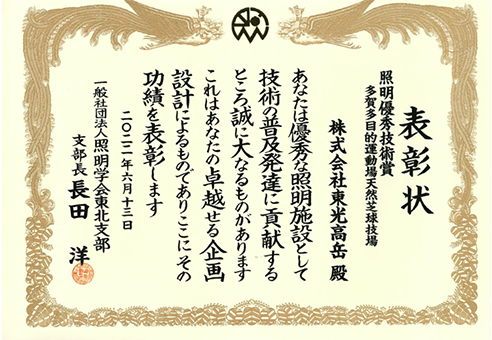 表彰状
照明優秀技術賞
多賀多目的運動場天然芝球技場
株式会社東光高岳 殿
あなたは優秀な照明施設として
技術の普及発達に貢献する
ところ誠に大なるものがあります
これはあなたの卓越せる企画
設計によるものでありここにその
功績を表彰します
二〇二二年六月十三日
一般社団法人照明学会東北支部
支部長 長田 洋